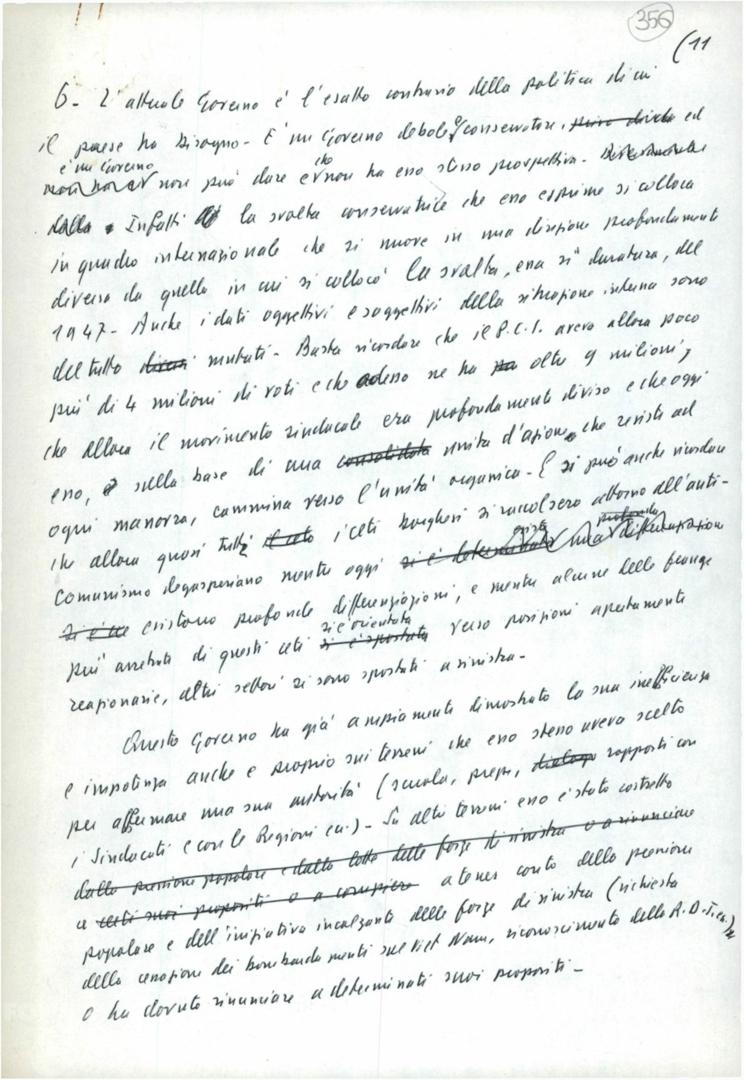 356
(11
6 - L'attuale Governo è l'esatto contrario della politica di cui
il paese ha bisogno - E' un Governo debole e conservatore, ed
è un Governo
che
non può dare ciò non ha esso stesso prospettiva -
dalla Infatti la svolta conservatrice che esso esprime si colloca
in quadro internazionale che si muove in una direzione profondamente
diversa da quella in cui si collocò la svolta, essa sì duratura, del
1947 - Anche i dati oggettivi e soggettivi della situazione interna sono
del tutto mutati - Basta ricordare che il P.C.I. aveva allora poco
più di 4 milioni di voti e che adesso ne ha oltre 9 milioni,
che allora il movimento sindacale era profondamente diviso e che oggi
esso, sulla base di una consolidata unità d'azione, che resiste ad
ogni manovra, cammina verso l'unità organica - E si può anche ricordare
che allora quasi tutti i ceti borghesi si raccolsero attorno all'anti-
comunismo degasperiano mentre oggi si è determinata una differenziazione
esiste profonda
si è esistono profonde differenziazioni, e mentre alcune delle frange
si è orientata
più arretrate di questi ceti si è spostata verso posizioni apertamente
reazionarie, altri settori si sono spostati a sinistra -
Questo Governo ha già ampiamente dimostrato la sua inefficienza
e impotenza anche e proprio sui terreni che esso stesso aveva scelto
per affermare una sua autorità (scuola, prezzi, dialogo rapporti con
i Sindacati e con le Regioni ecc.) - Su altri terreni esso è stato costretto
dalla pressione popolare e dalla lotta delle forze di sinistra o a rinunciare
a certi suoi propositi o a compiere a tener conto della pressione
popolare e dell'iniziativa incalzante delle forze di sinistra (richiesta
della cessazione dei bombardamenti sul Viet Nam, riconoscimento della R.D.T. ecc.)
o ha dovuto rinunciare a determinati suoi propositi -